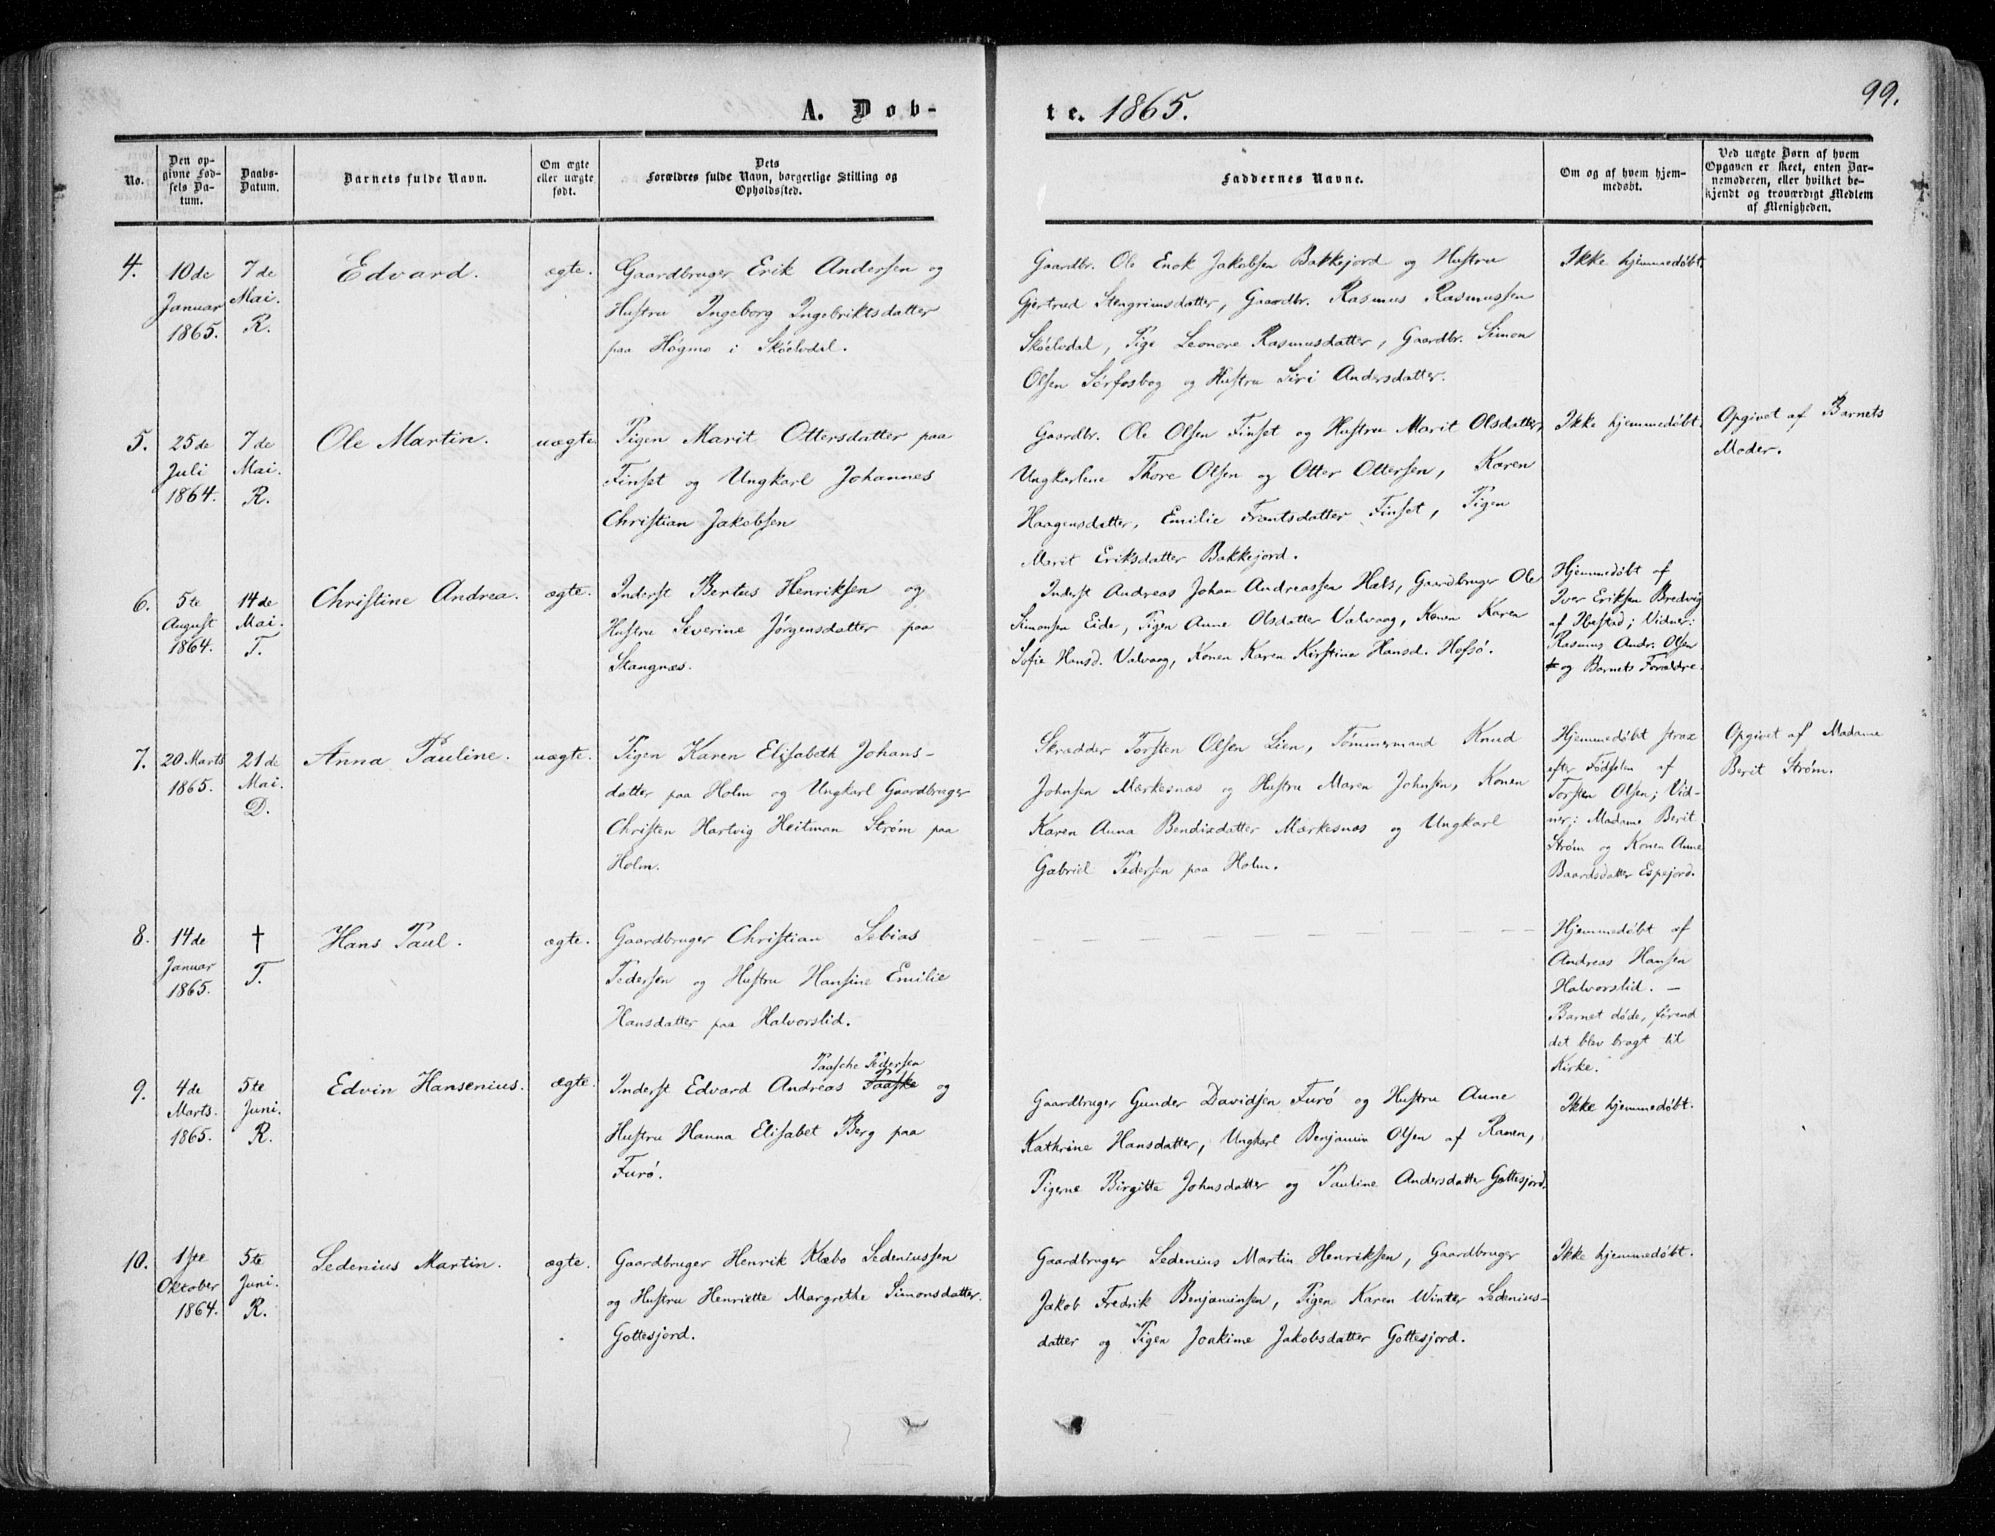 99.
A. Døb-
te. 1865.
No.
Den op-
givne Fød-
sels Da-
tum.
Daabs-
Datum.
Barnets fulde Navn.
Om ægte
eller uægte
født.
Dets
Forældres fulde Navn, borgerlige Stilling og
Opholdssted.
Faddernes Navne.
Om og af hvem hjem-
medøbt.
Ved uægte Børn af hvem
Opgaven er skeet, enten Bar-
nemoderen, eller hvilket be-
kjendt og troværdigt Medlem
af Menigheden.
4.
10de
Januar
1865.
7de
Mai.
R.
Edvard.
ægte.
Gaardbruger Erik Andersen og
Hustru Ingeborg Ingebriktsdatter
paa Høgmo i Skóelvdal.
Gaardbr. Ole Enok Jakobsen Bakkejord og Hustru
Gjertrud Stengrimsdatter, Gaardbr. Rasmus Rasmussen
Skóelvdal, Pige Leonore Rasmusdatter, Gaardbr. Simon
Olsen Sørfosbog og Hustru Siri Andersdatter.
Ikke hjemmedøbt.
5.
25de
Juli
1864.
7de
Mai.
R.
Ole Martin.
uægte.
Pigen Marit Ottersdatter paa
Finset og Ungkarl Johannes
Christian Jakobsen
Gaardbr. Ole Olsen Finset og Hustru Marit Olsdatter,
Ungkarlene Thore Olsen og Otter Ottersen, Karen
Haagensdatter, Emilie Frantsdatter Finset, Pigen
Marit Eriksdatter Bakkejord.
Ikke hjemmedøbt.
Opgivet af Barnets
Moder.
6.
5te
August
1864.
14de
Mai.
T.
Christine Andrea.
ægte.
Inderst Bertus Henriksen og
Hustru Severine Jørgensdatter paa
Stangnæs.
Inderst Andreas Johan Andreassen Hals, Gaardbruger Ole
Simonsen Eide, Pigen Anne Olsdatter Valvaag, Konen Karen
Sofie Hansd. Valvaag, Konen Karen Kirstine Hansd. Hofsö.
Hjemmedøbt af
Iver Eriksen Bredvig
af Hafstad; Vidner:
Rasmus Andr. Olsen
og Barnets Forældre.
7.
20 Marts
1865.
21de
Mai.
D.
Anna Pauline.
uægte.
Pigen Karen Elisabeth Johans-
datter paa Holm og Ungkarl Gaardbruger
Christen Hartvig Heitman Strøm paa
Holm.
Skrædder Torsten Olsen Lien, Tömmermand Knud
Johnsen Mærkesnæs og Hustru Maren Johnsen, Konen
Karen Anna Bendixdatter Mærkesnæs og Ungkarl
Gabriel Pedersen paa Holm.
Hjemmedøbt strax
efter Födselen af
Torsten Olsen; Vid-
ner: Madame Berit
Strøm og Konen Anne
Baardsdatter Espejord.
Opgivet af Madame
Berit Strøm.
8.
14de
Januar
1865.
†
T.
Hans Paul.
ægte.
Gaardbruger Christian Sebias
Pedersen og Hustru Hansine Emilie
Hansdatter paa Halvorslid.
Hjemmedøbt af
Andreas Hansen
Halvorslid. –
Barnet døde, førend
det blev bragt til
Kirke.
9.
4de
Marts.
1865.
5te
Juni.
R.
Edvin Hansenius.
ægte.
Paasche Pedersen
Inderst Edvard Andreas Paaske og
Hustru Hanna Elisabet Berg paa
Furö.
Gaardbruger Gunder Davidsen Furö og Hustru Anne
Kathrine Hansdatter, Ungkarl Benjamin Olsen af Ranen,
Pigerne Birgitta Johnsdatter og Pauline Andersdatter Gottesjord.
Ikke hjemmedøbt.
10.
1ste
Oktober
1864.
5te
Juni.
R.
Sedenius Martin.
ægte.
Gaardbruger Henrik Klæbo Sedeniussen
og Hustru Henriette Margrethe Simonsdatter.
Gottesjord.
Gaardbruger Sedenius Martin Henriksen, Gaardbruger
Jakob Fredrik Benjaminsen, Pigen Karen Winter Sedenius-
datter og Pigen Joakime Jakobsdatter Gottesjord.
Ikke hjemmedøbt.